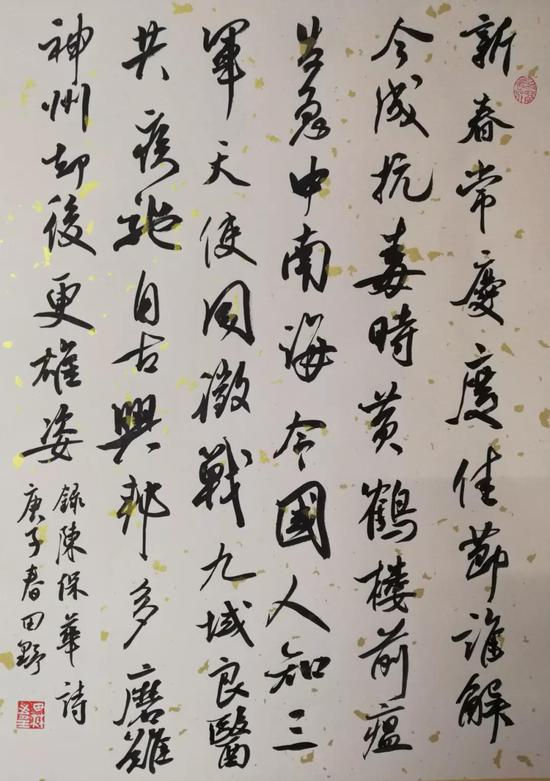 新春常慶度佳節誰解
今成抗毒時黃鶴樓前瘟
告急中南海令國人知三
軍天使同徵戰九域良醫
共疾馳自古興邦多磨難
神州却後更雄姿
錄陳保華詩
庚子春田野